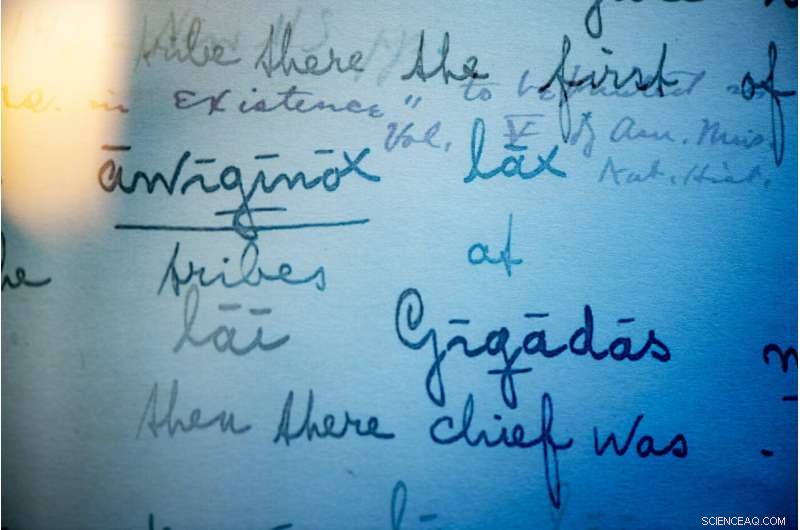 tribe there the first of
in Existence" to be
Vol. V of Am. Mus.
āwīgīnōx lāx
Nat. Hist.
he tribes at
lāī Gīgādās
then there chief was .
SCIENCEAQ.COM